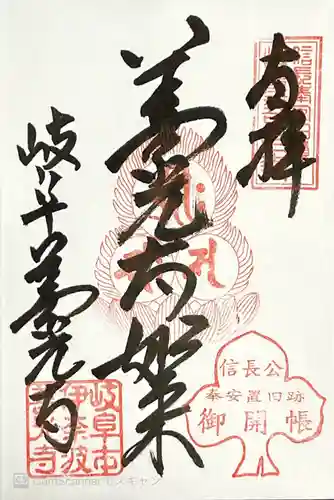 奉拝
善光寺如来
岐阜善光寺
信長公
奉安置旧跡
御開帳
岐阜市
伊奈波
善光寺
CamScannerでスキャン